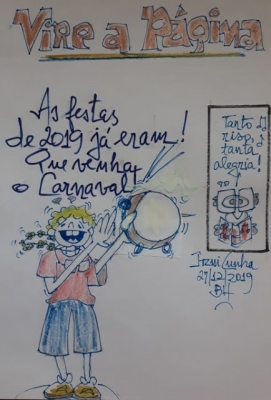 Vire a Página
As festas
de 2019 já eram!
Que venha
o Carnaval!
Tanto
riso,
tanta
alegria!
Cunha
27/12/2019
BH